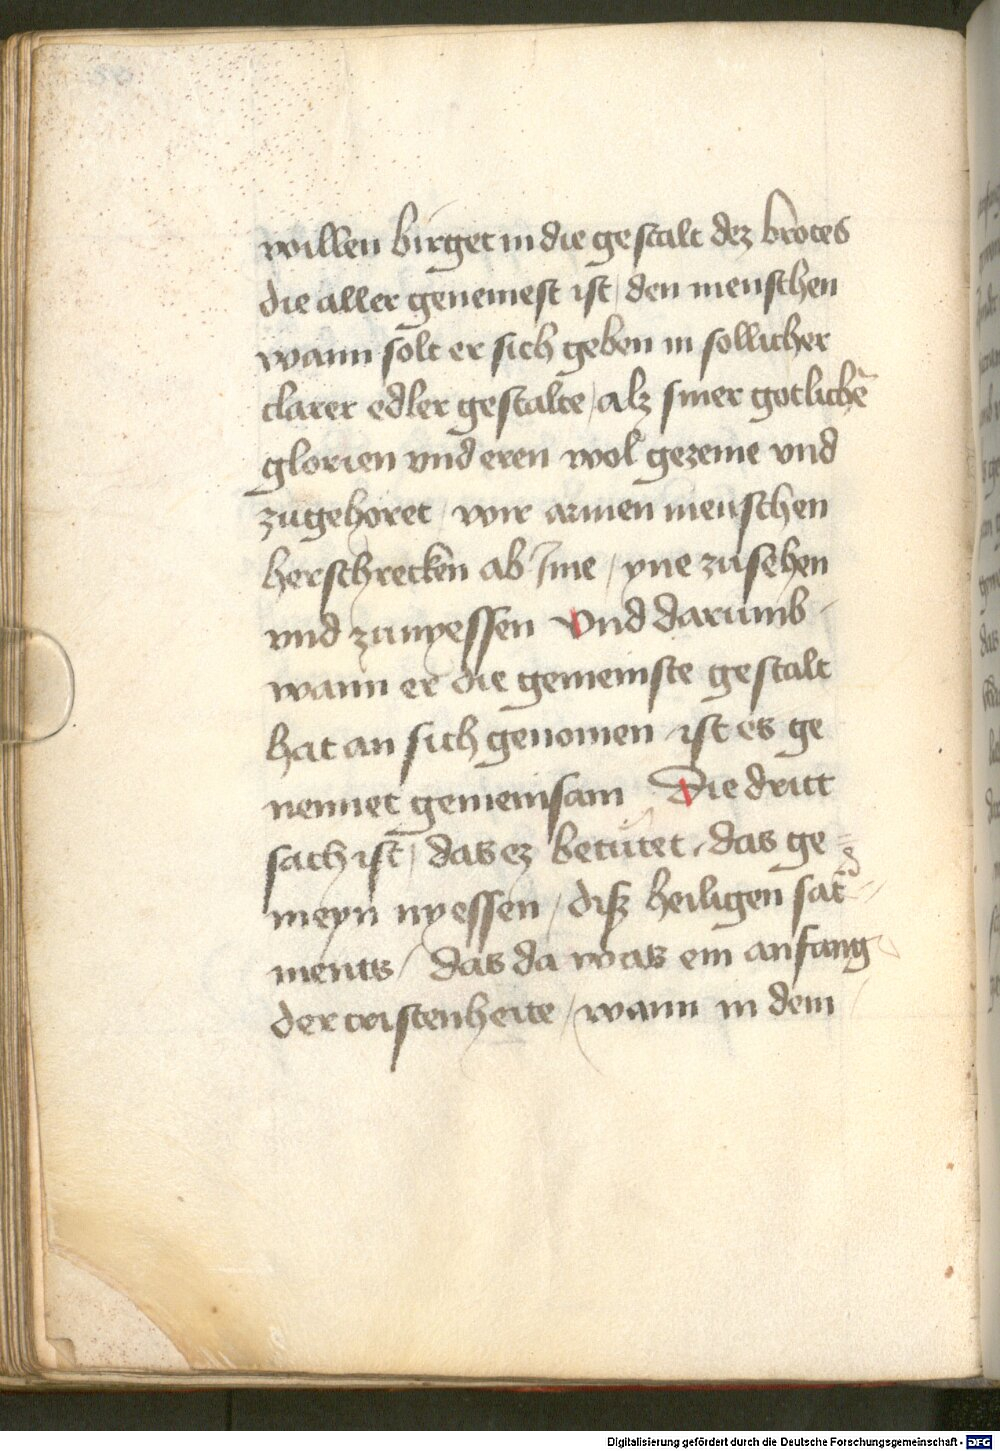 willen birget in die gestalt dez brotes
die aller genemest ist / den menschen
wann solt er sich geben in sollicher
clarer edler gestalte / alz siner gotlichē
glorien vnd eren wol gezeme vnd
zugehoret / wir armen menschen
herschrecken ab Jme / yne zusehen
vnd zunyessen Vnd darumb
wann er die gemeinste gestalt
hat an sich genomen / ist es ge
nennet gemeinsam Die dritt
sach ist / das ez betutet / das ge=
meyn nyessen / disz heiligen
ments / das da was ein anfang
der cristenheite / wann in dem
Digitalisierung gefördert durch die Deutsche Forschungsgemeinschaft - DFG